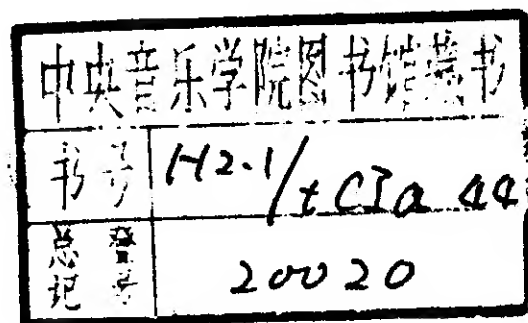 中央音乐学院图书馆藏书
书号 H2.1/tCJa 44
总登记号 20020